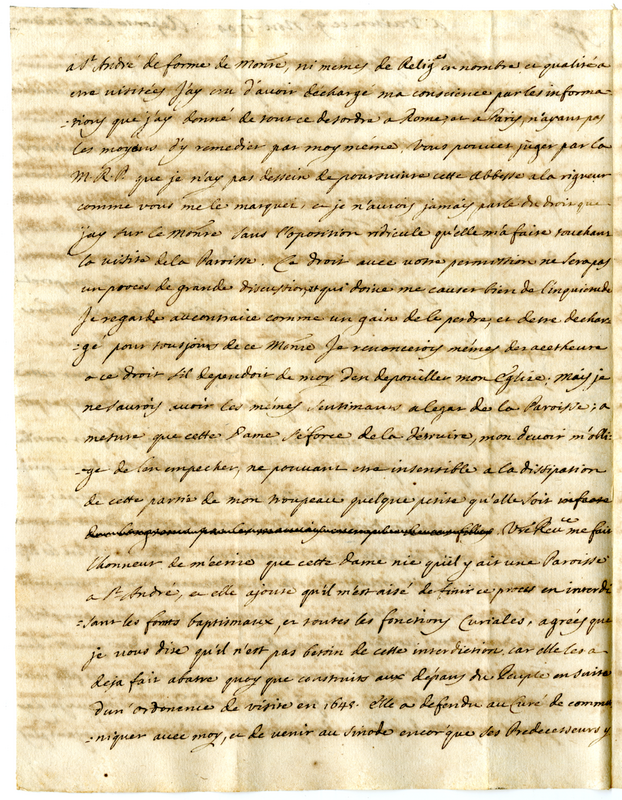 a St André de forme de Monre, ni memes de Religes en nombre, ce qualité a
etre visitées J'ay cru d'avoir dechargé ma conscience par les informa-
-tions que j'ay donné de tout ce desordre a Rome, et a Paris, n'ayant pas
les moyens d'y remedier par moy méme, Vous pouvez juger par la
M. R. P. que je n'ay pas dessein de poursuivre cette abbesse a la rigueur
comme vous me le marquez, et je n'aurois jamais parlé du droit que
j'ay sur le Monre sans l'oposition ridicule qu'elle m'a faite touchant
la visite de la Paroisse. Ce droit avec votre permission ne sera pas
un proces de grande discution, et qui doive me causer bien de l'inquietude
Je regarde au contraire comme un gain de le perdre, et detre dechar-
-gé pour tousjours de ce Monre Je renoncerois mémes des acetheure
a ce droit s'il dependoit de moy d'en depouiller mon Eglise; Mais je
ne saurois avoir les mémes sentimans a legar de la Paroisse; a
mesure que cette Dame s'éforce de la détruire, mon devoir m'obli-
-ge de l'en empecher, ne pouvant etre insensible a la dissipation
de cette partie de mon troupeau quelque petite qu'elle soit
Vre Reuce me fait
l'honneur de m'écrire que cette Dame nie qu'il y ait une Paroisse
a St André, et elle ajoute qu'il m'est aisé de finir ce proces en interdi-
-sant les fonts baptismaux, et toutes les fonctions Curiales, agrées que
je vous dise qu'il n'est pas besoin de cette interdiction, car elle les a
deja fait abatre quoy que construits aux dépans du Peuple en suite
d'un ordonence de visite en 1648. Elle a defendu au Curé de commu-
-niquer avec moy, et de venir au sinode encor que ses Predecesseurs y